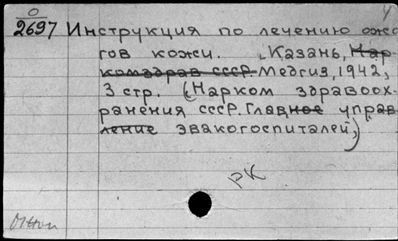 О
2697 Инструкция по лечению ожо
гов кожи. Казань, Нар-
комздрав СССР. Медгиз, 1942,
3 стр. (Нарком здравоох-
ранения СССР. Главное управ
ление эвакогоспиталей)
РК